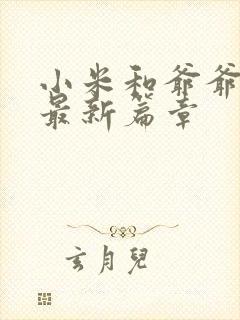 小米和爷爷
最新篇章
玄月兒